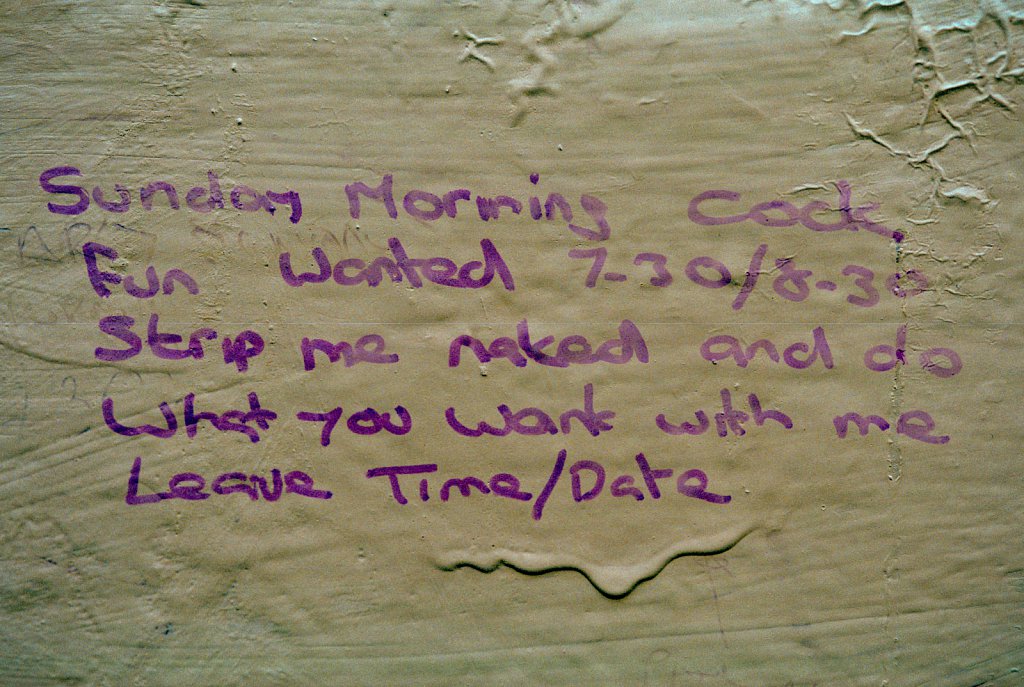 Sunday Morning Cock
Fun Wanted 7-30/8-30
Strip me naked and do
What you want with me
Leave Time/Date